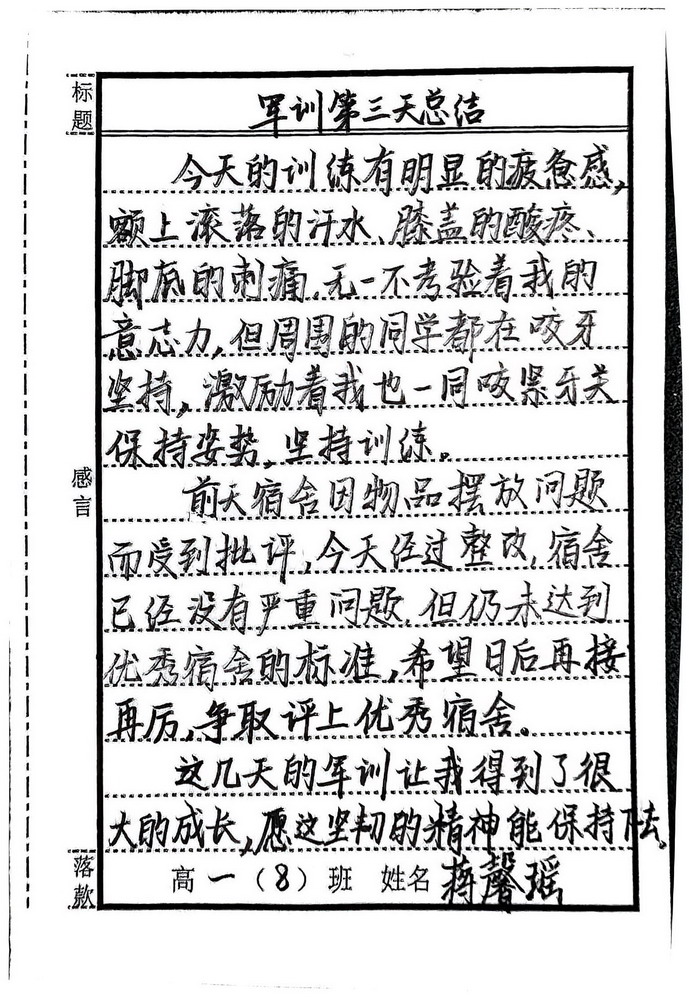 标题
军训第三天总结
今天的训练有明显的疲惫感,
额上滚落的汗水、膝盖的酸疼、
脚底的刺痛,无一不考验着我的
意志力,但周围的同学都在咬牙
坚持,激励着我也一同咬紧牙关
保持姿势,坚持训练。
感言
前天宿舍因物品摆放问题
而受到批评,今天经过整改,宿舍
已经没有严重问题,但仍未达到
优秀宿舍的标准,希望日后再接
再厉,争取评上优秀宿舍。
这几天的军训让我得到了很
大的成长,愿这坚韧的精神能保持下去。
落款
高一(8)班 姓名蒋馨瑶